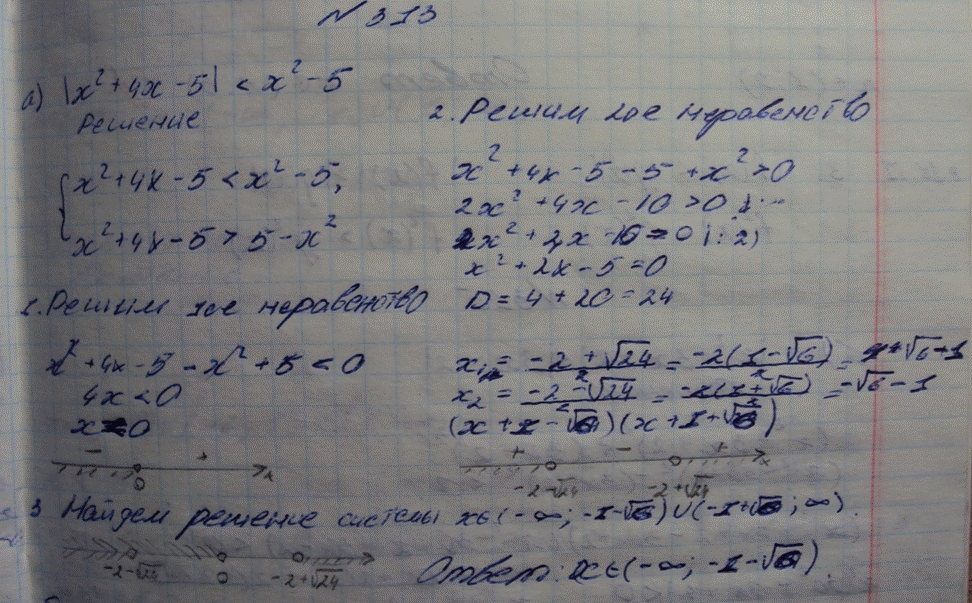 № 313
а) |x²+4x-5| < x²-5
Решение
{ x²+4x-5 < x²-5,
x²+4x-5 > 5-x²
1. Решим 1ое неравенство
x²+4x-5-x²+5 < 0
4x < 0
x < 0
- + x
0
2. Решим 2ое неравенство
x²+4x-5-5+x² > 0
2x²+4x-10 > 0
2x²+4x-10=0 |:2)
x²+2x-5=0
D = 4+20 = 24
x₁ = (-2+√24)/2 = -2(1-√6)/2 = √6-1
x₂ = (-2-√24)/2 = -2(1+√6)/2 = -√6-1
(x+1-√6)(x+1+√6)
+ - + x
-2-√24 -2+√24
3 Найдем решение системы x∈(-∞; -1-√6)∪(-1+√6; ∞).
-2-√24 0 -2+√24
Ответ: x∈(-∞; -1-√6).